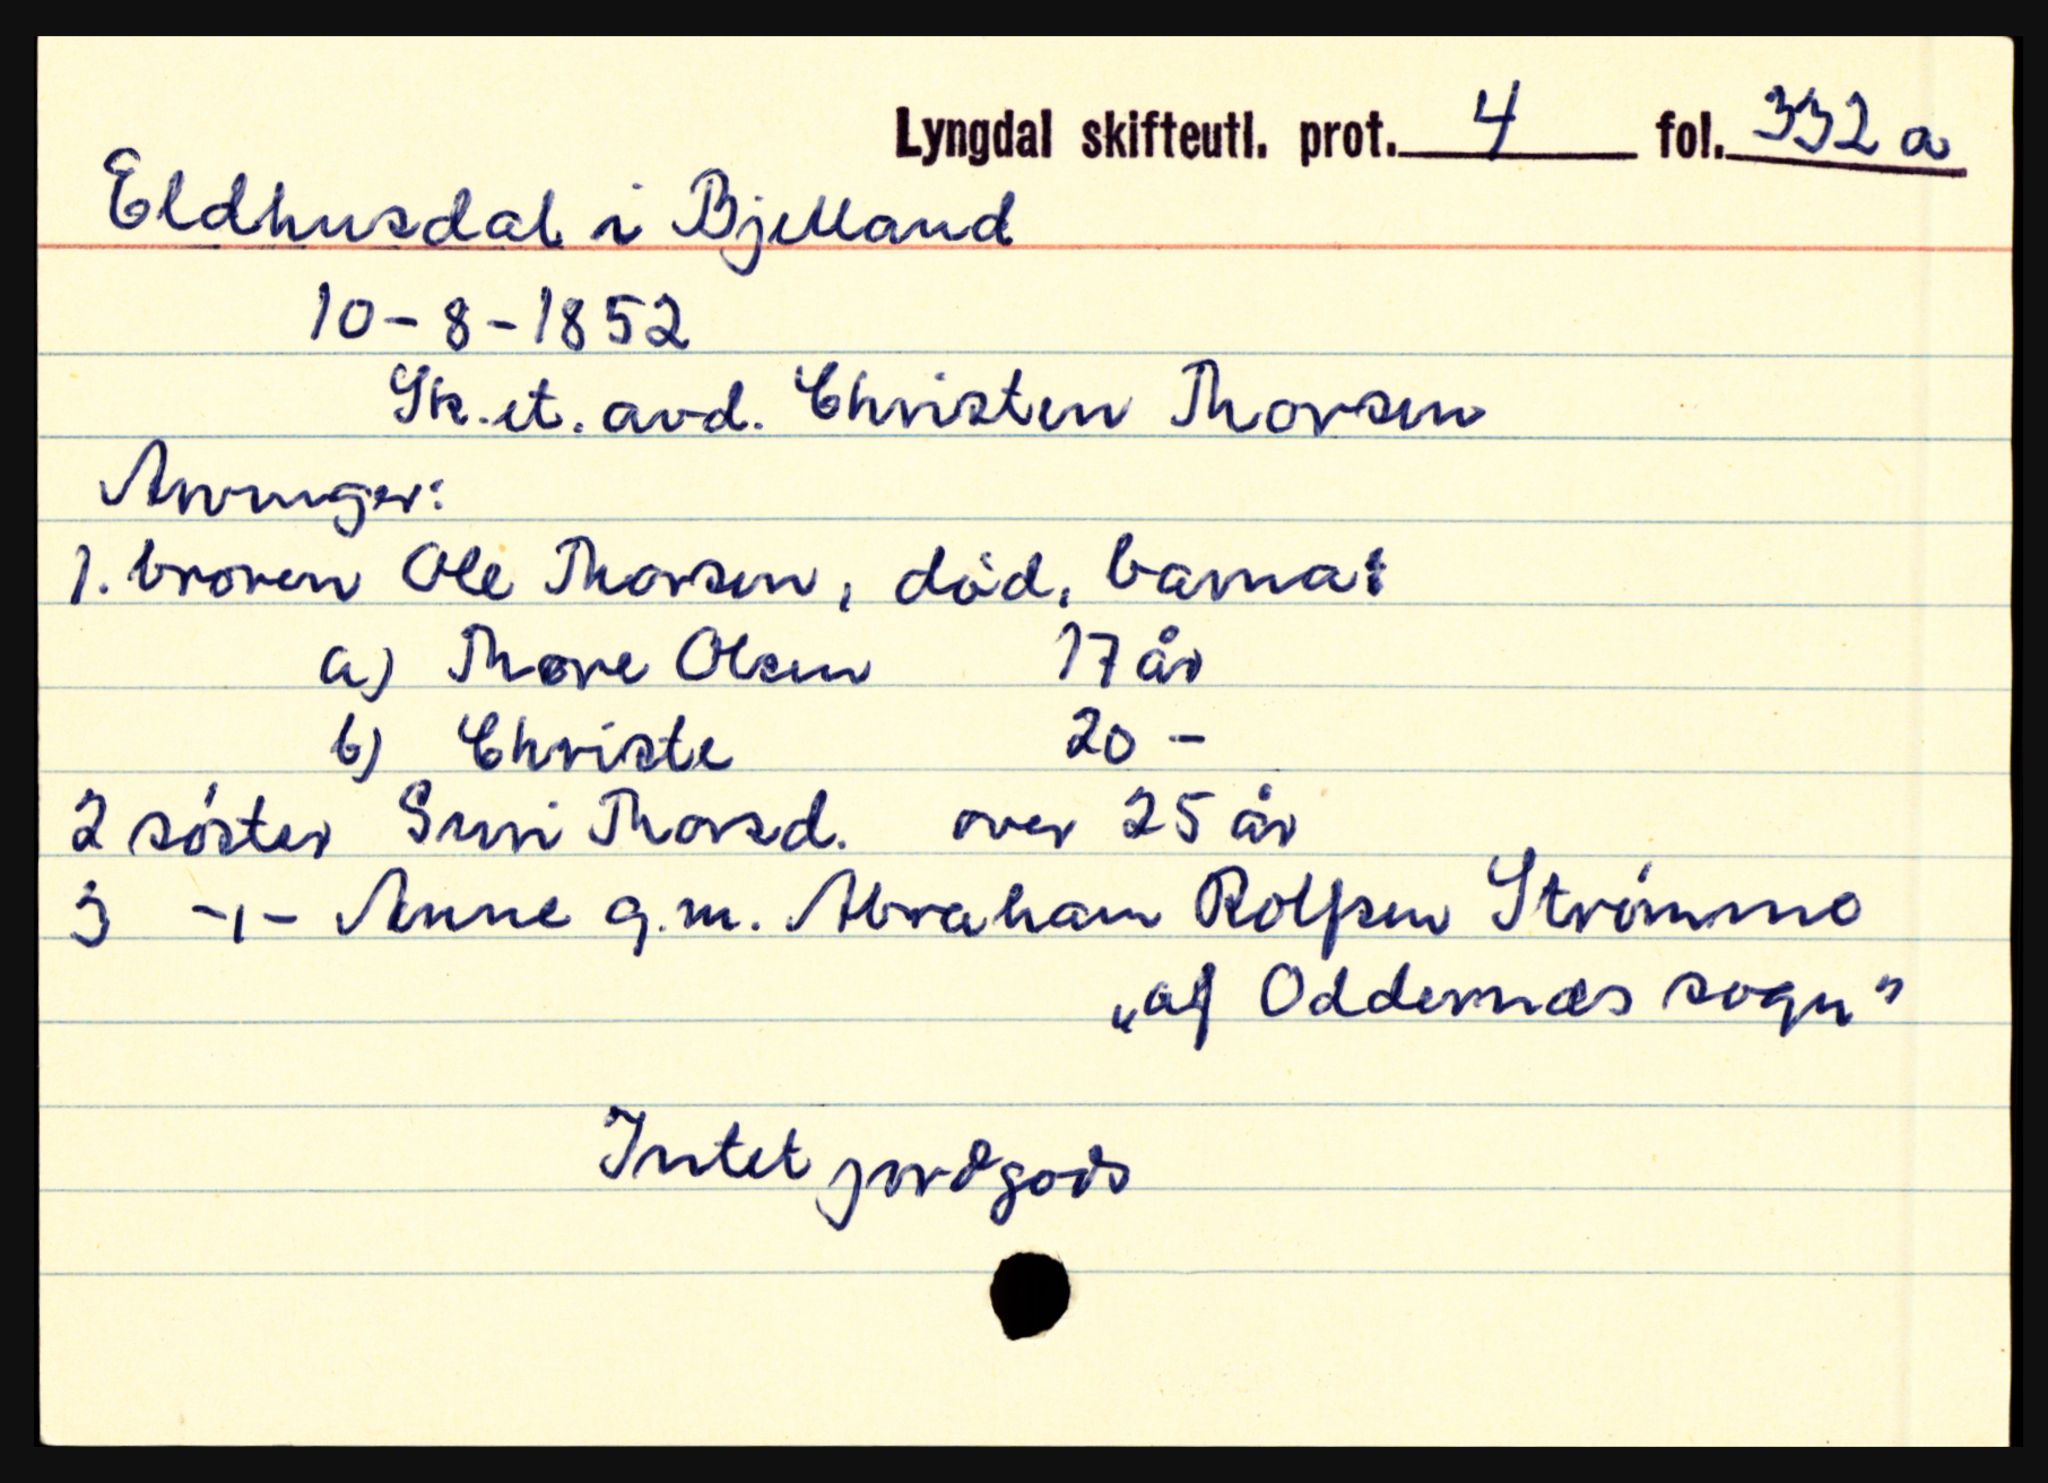 Lyngdal skifteutl. prot. 4 fol. 332 a
Eldhusdal i Bjelland
10-8-1852
Sk. et. avd. Christen Thorsen
Arvinger:
1. broren Ole Thorsen, død, barna:
a) Thore Olsen 17 år
b) Christe 20 -
2 søster Siri Thorsd. over 25 år
3 -"- Anne g.m. Abraham Rolfsen Strømme
„af Oddernæs sogn"
Intet jordgods